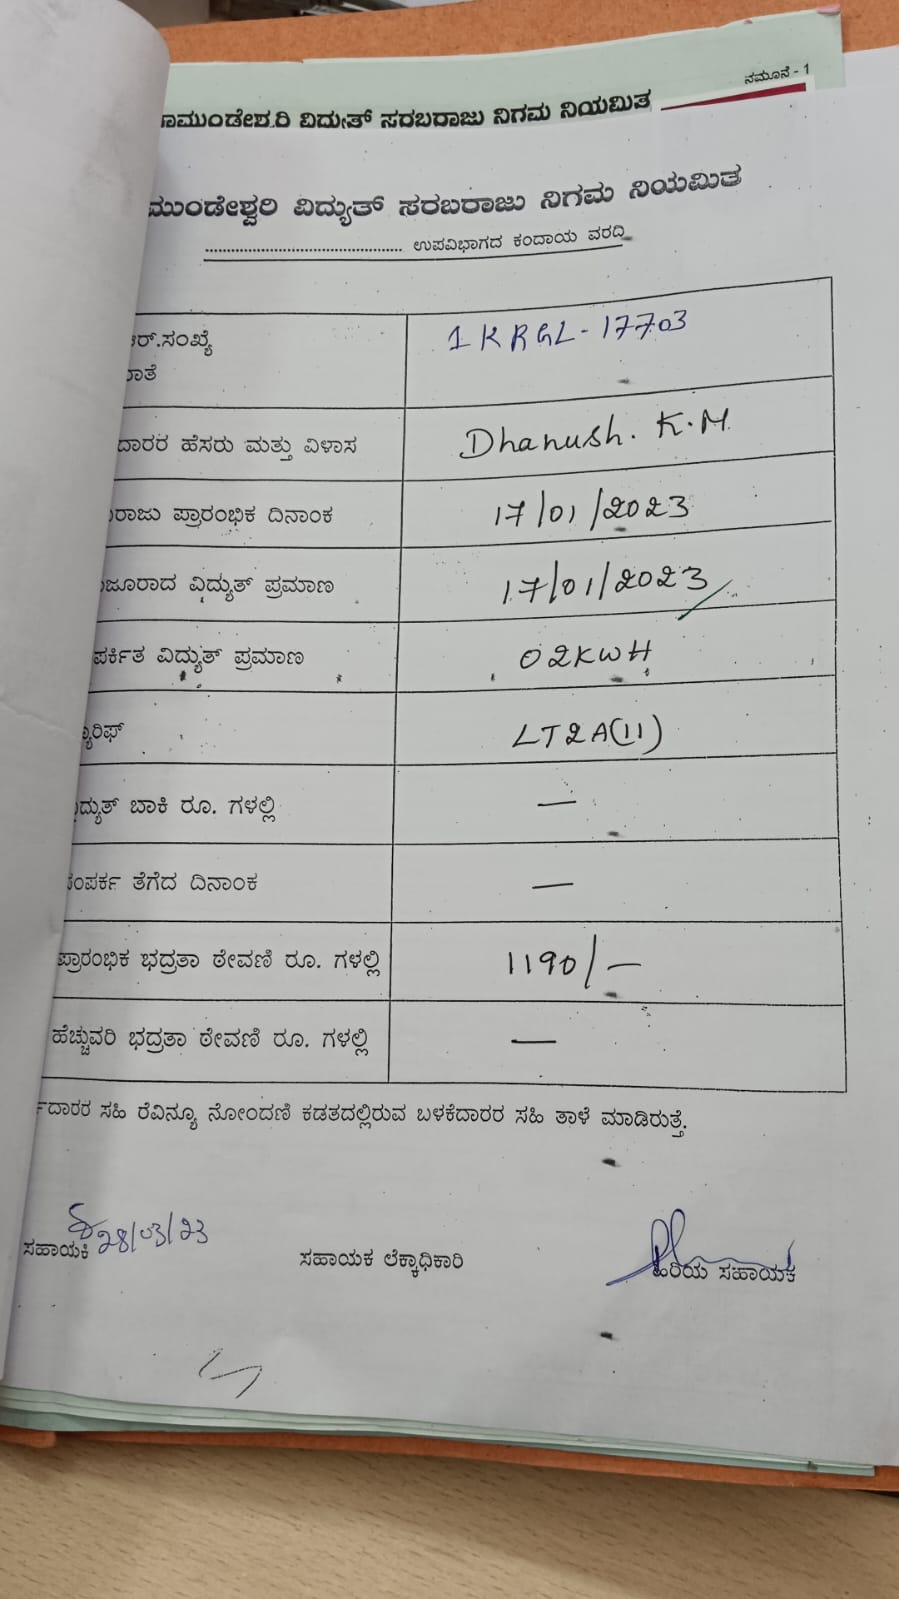 ನಮೂನೆ - 1
ಾಮುಂಡೇಶ್ವರಿ ವಿದ್ಯುತ್ ಸರಬರಾಜು ನಿಗಮ ನಿಯಮಿತ
ಮುಂಡೇಶ್ವರಿ ವಿದ್ಯುತ್ ಸರಬರಾಜು ನಿಗಮ ನಿಯಮಿತ
............................................. ಉಪವಿಭಾಗದ ಕಂದಾಯ ವರದಿ
ಆರ್.ಸಂಖ್ಯೆ 1KRGL-17703
ಾತೆ
ದಾರರ ಹೆಸರು ಮತ್ತು ವಿಳಾಸ Dhanush. K.M.
ರಾಜು ಪ್ರಾರಂಭಿಕ ದಿನಾಂಕ 17/01/2023
ಜೂರಾದ ವಿದ್ಯುತ್ ಪ್ರಮಾಣ 17/01/2023
ಪರ್ಕಿತ ವಿದ್ಯುತ್ ಪ್ರಮಾಣ 02KWH
್ಯಾರಿಫ್ LT2A(11)
ದ್ಯುತ್ ಬಾಕಿ ರೂ. ಗಳಲ್ಲಿ —
ಸಂಪರ್ಕ ತೆಗೆದ ದಿನಾಂಕ —
ಪ್ರಾರಂಭಿಕ ಭದ್ರತಾ ಠೇವಣಿ ರೂ. ಗಳಲ್ಲಿ 1190/—
ಹೆಚ್ಚುವರಿ ಭದ್ರತಾ ಠೇವಣಿ ರೂ. ಗಳಲ್ಲಿ —
ದಾರರ ಸಹಿ ರೆವಿನ್ಯೂ ನೋಂದಣಿ ಕಡತದಲ್ಲಿರುವ ಬಳಕೆದಾರರ ಸಹಿ ತಾಳೆ ಮಾಡಿರುತ್ತೆ.
28/03/23
ಸಹಾಯಕಿ ಸಹಾಯಕ ಲೆಕ್ಕಾಧಿಕಾರಿ ಹಿರಿಯ ಸಹಾಯಕ